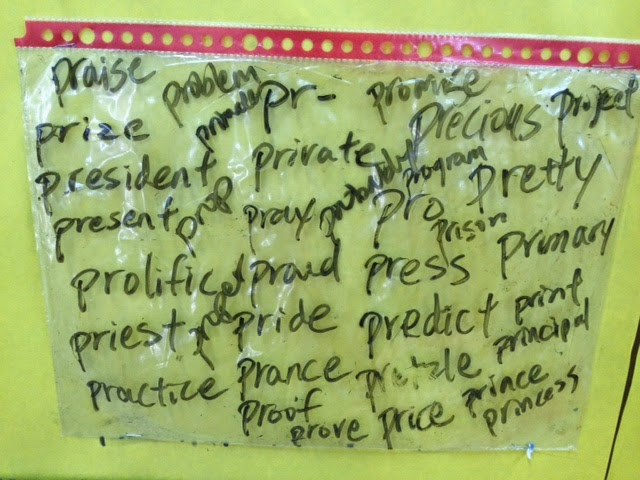 praise problem pr- promise
prize precious project
president private program
present prop pray pro pretty
prison
prolific proud press primary
priest pride predict print
practice prance principal
proof prove price prince
princess